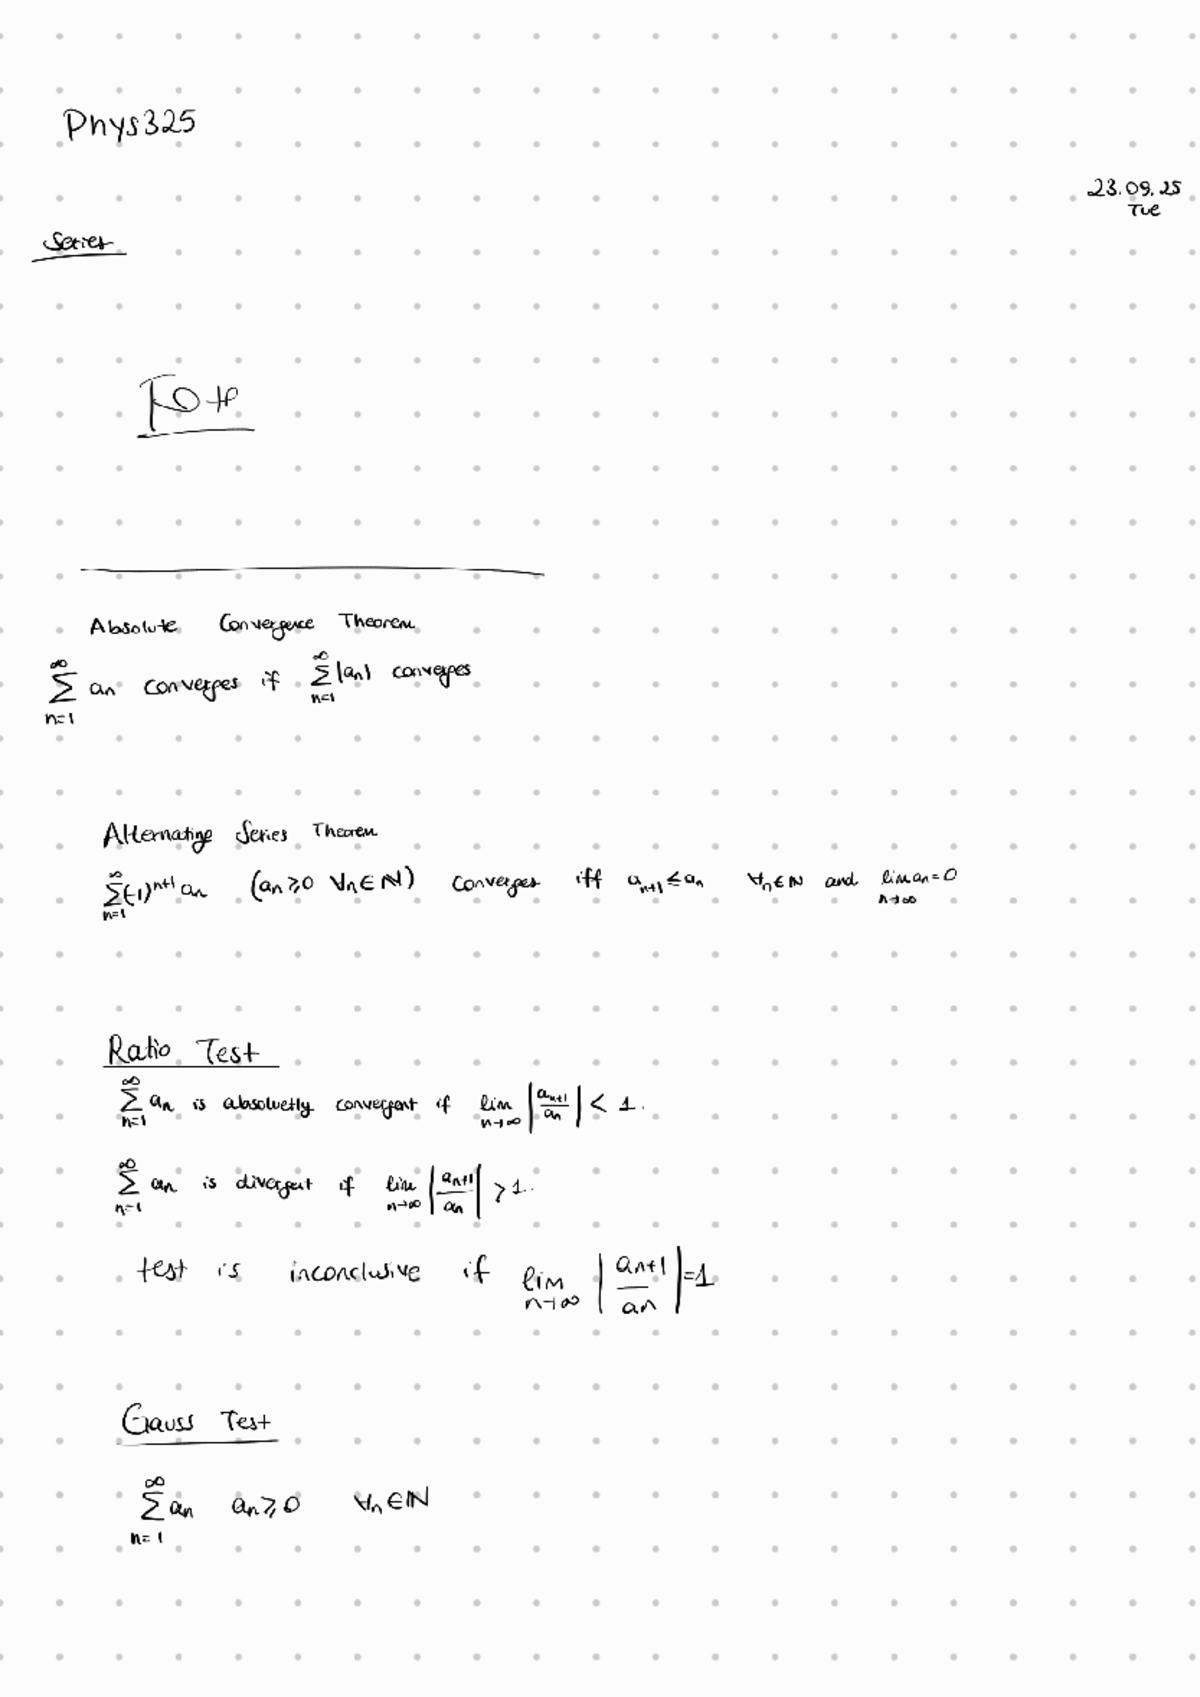 Phys325
23.09.25
Tue
Series
Absolute Convergence Theorem
∞∑n=1 an converges if ∞∑n=1 |an| converges
Alternating Series Theorem
∞∑n=1 (-1)^n+1 an (an ≥ 0 ∀n∈ℕ) converges iff an+1 ≤ an ∀n∈ℕ and lim n→∞ an = 0
Ratio Test
∞∑n=1 an is absoluetly convergent if lim n→∞ |an+1/an| < 1.
∞∑n=1 an is divergent if lim n→∞ |an+1/an| > 1.
test is inconclusive if lim n→∞ |an+1/an| = 1
Gauss Test
∞∑n=1 an an ≥ 0 ∀n∈ℕ